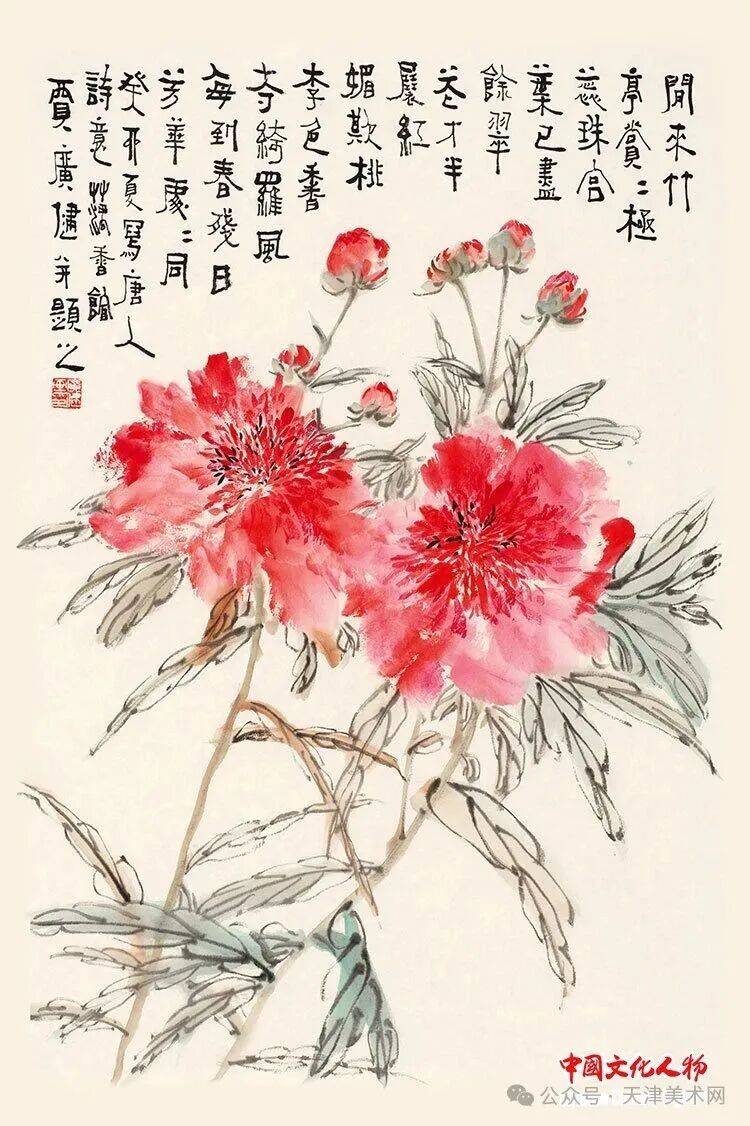 閒來竹
亭賞〻極
蕊珠宮
葉已盡
餘翠
花才半
展紅
媚欺桃
李色香
奪綺羅風
每到春殘日
芳華處〻同
癸卯夏寫唐人
詩意香館
賈廣健并題之
中国文化人物
公众号 · 天津美术网